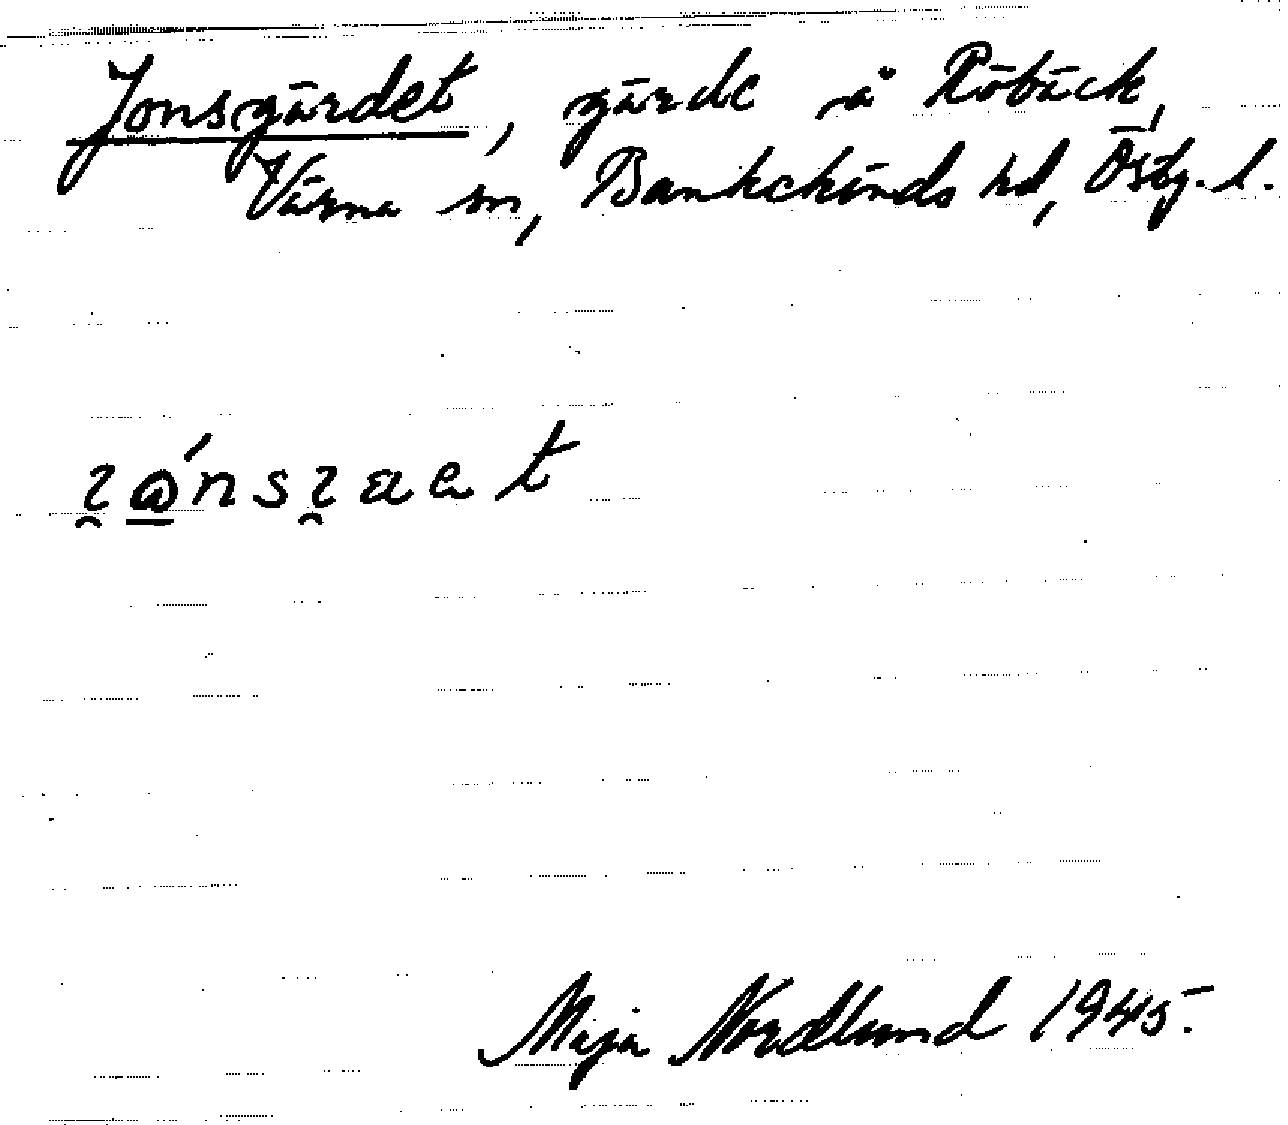 Jonsgärdet, gärde å Röbäck,
Värna sn, Bankekinds hd, Östg. l.
Maja Nordlund 1945.